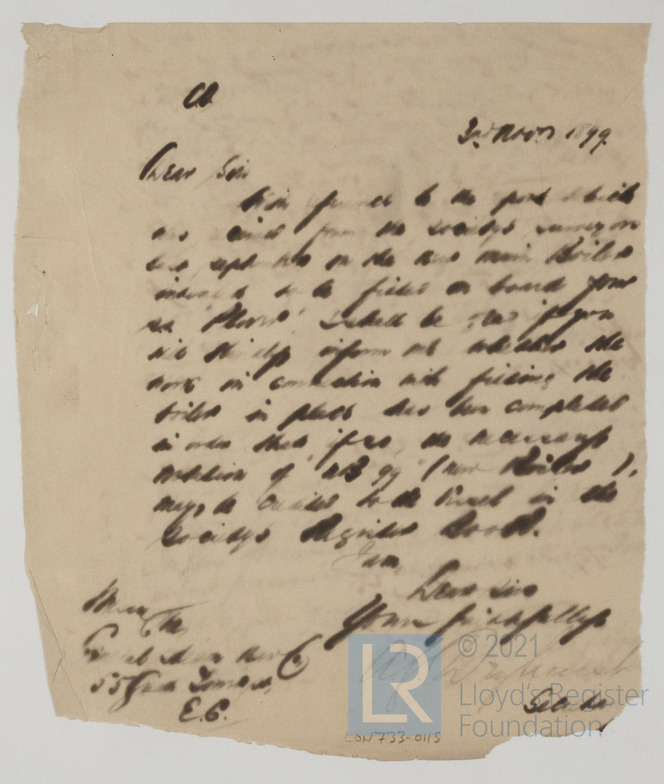 3rd Novr 1899.
Dear Sir
With to the
from the Society's Surveyors
last Sept on the new main Boilers
to be fitted on board your
ss "Plover" I shall be if you
will kindly inform me whether the
work in connection with fitting the
boilers in place has been completed
in order that if so, the necessary
notation of "NB 99" (new Boilers),
may be to the Vessel in the
Society's Register Book.
I am
Dear Sir
Yours faithfully
Secretary
General Steam Navn Co
55 Great Tower St,
E.C.
LR
© 2021
Lloyd's Register
Foundation
LON733-0115